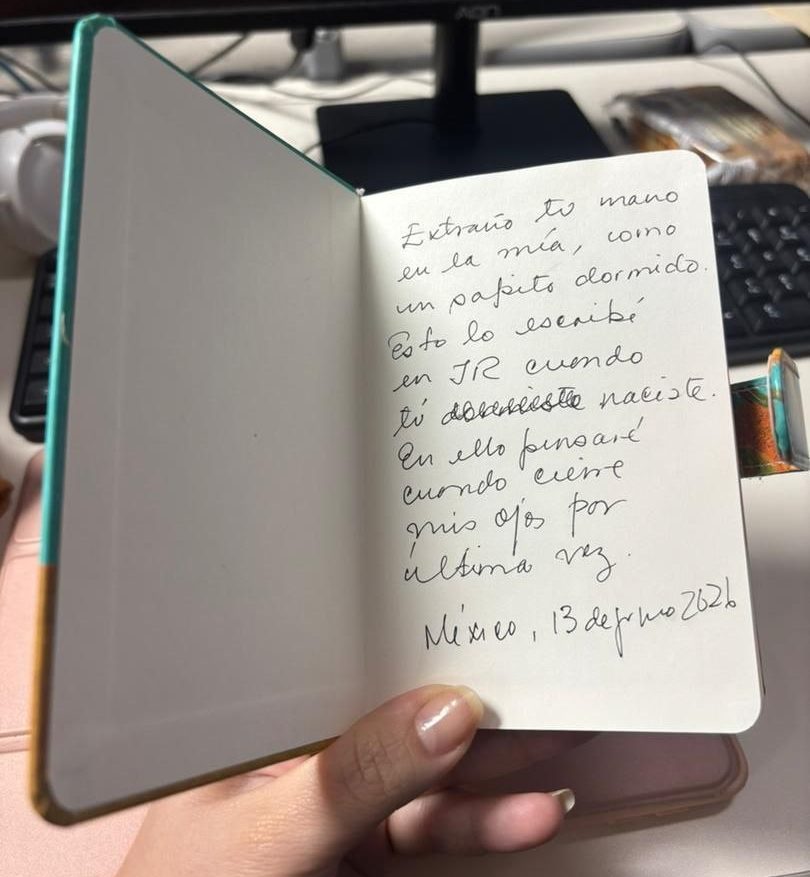 AOC
Extraño tu mano
en la mía, como
un sapito dormido.
Esto lo escribí
en JR cuando
tú naciste.
En ello pensaré
cuando cierre
mis ojos por
última vez.
México, 13 de junio 2026